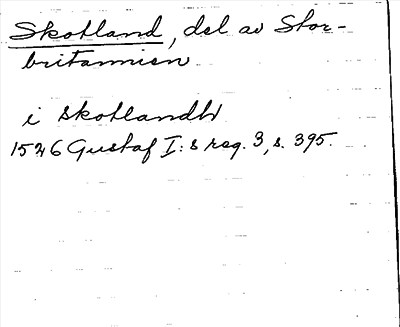 Skotland, del av Stor-
britannien
i skotlandh
1526 Gustaf I:s reg. 3, s. 395.